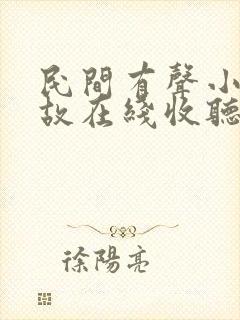 民間有聲小
故在綫收聽
徐陽亮